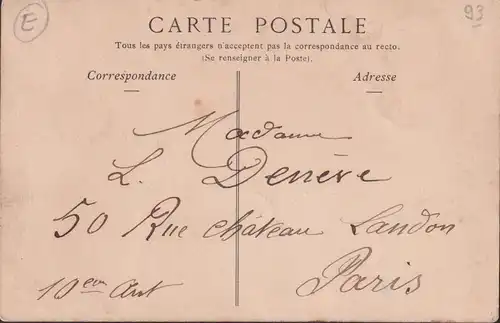 E
93
CARTE POSTALE
Tous les pays étrangers n'acceptent pas la correspondance au recto.
(Se renseigner à la Poste).
Correspondance Adresse
Madame
L. Denève
50 Rue château Landon
Paris
10em Art